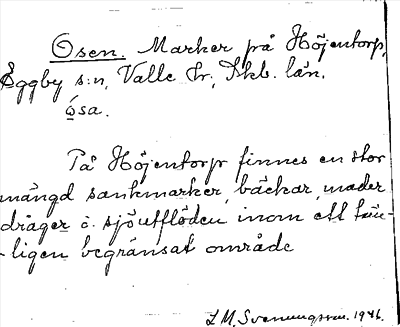 Osen. Marker på Höjentorp,
Eggby s:n, Valle hr, Skb. län.
ósa.
På Höjentorp finnes en stor
mängd sankmarker, bäckar, mader
dråger o. sjöutflöden inom ett täm-
-ligen begränsat område
L M. Svenungsson. 1946.